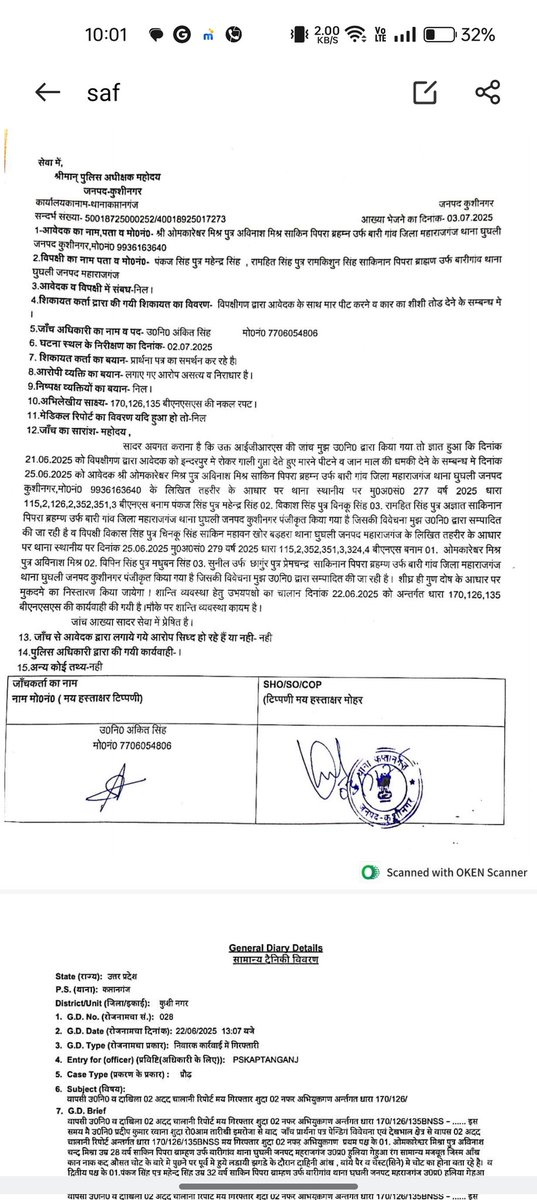 10:01
2.00 KB/S
Vo LTE
32%
saf
सेवा में,
श्रीमान् पुलिस अधीक्षक महोदय
जनपद-कुशीनगर
कार्यालयकानाम-थानाकप्तानगंज जनपद कुशीनगर
सन्दर्भ संख्या- 50018725000252/40018925017273 आख्या भेजने का दिनाक- 03.07.2025
1-आवेदक का नाम,पता व मो0नं0- श्री ओमकारेश्वर मिश्र पुत्र अविनाश मिश्र साकिन पिपरा ब्रहम्न उर्फ बारी गांव जिला महाराजगंज थाना घुघली
जनपद कुशीनगर,मो0नं0 9936163640
2.विपक्षी का नाम पता व मो0नं0- पंकज सिंह पुत्र महेन्द्र सिंह , रामहित सिंह पुत्र रामकिशुन सिंह साकिनान पिपरा ब्राह्मण उर्फ बारीगांव थाना
घुघली जनपद महाराजगंज
3.आवेदक व विपक्षी में संबध-निल।
4.शिकायत कर्ता द्रारा की गयी शिकायत का विवरण- विपक्षीगण द्वारा आवेदक के साथ मार पीट करने व कार का शीशी तोड देने के सम्बन्ध मे
।
5.जाँच अधिकारी का नाम व पद- उ0नि0 अंकित सिंह मो0नं0 7706054806
6. घटना स्थल के निरीक्षण का दिनाक- 02.07.2025
7. शिकायत कर्ता का बयान- प्रार्थना पत्र का समर्थन कर रहे है।
8.आरोपी व्यक्ति का बयान- लगाए गए आरोप असत्य व निराधार है।
9.निष्पक्ष व्यक्तियों का बयान- निल।
10.अभिलेखीय साक्ष्य- 170,126,135 बीएनएसएस की नकल रपट।
11.मेडिकल रिपोर्ट का विवरण यदि हुआ हो तो-निल
12.जाँच का सारांश- महोदय ,
सादर अवगत कराना है कि उक्त आईजीआरएस की जांच मुझ उ0नि0 द्वारा किया गया तो ज्ञात हुआ कि दिनांक
21.06.2025 को विपक्षीगण द्वारा आवेदक को इन्दरपुर मे रोकर गाली गुप्ता देते हुए मारने पीटने व जान माल की धमकी देने के सम्बन्ध मे दिनांक
25.06.2025 को आवेदक श्री ओमकारेश्वर मिश्र पुत्र अविनाश मिश्र साकिन पिपरा ब्रहम्न उर्फ बारी गांव जिला महाराजगंज थाना घुघली जनपद
कुशीनगर,मो0नं0 9936163640 के लिखित तहरीर के आधार पर थाना स्थानीय पर मु0अ0सं0 277 वर्ष 2025 धारा
115,2,126,2,352,351,3 बीएनएस बनाम पंकज सिंह पुत्र महेन्द्र सिंह 02. विकाश सिंह पुत्र चिनकू सिंह 03. रामहित सिंह पुत्र अज्ञात साकिनान
पिपरा ब्रम्हण उर्फ बारी गांव जिला महाराजगंज थाना घुघली जनपद कुशीनगर पंजीकृत किया गया है जिसकी विवेचना मुझ उ0नि0 द्वारा सम्पादित
की जा रही है व विपक्षी विकास सिंह पुत्र चिनकू सिंह साकिन महावन खोर बड़हरा थाना घुघली जनपद महाराजगंज के लिखित तहरीर के आधार
पर थाना स्थानीय पर दिनांक 25.06.2025 मु0अ0सं0 279 वर्ष 2025 धारा 115,2,352,351,3,324,4 बीएनएस बनाम 01. ओमकारेश्वर मिश्र
पुत्र अविनाश मिश्र 02. विपिन सिंह पुत्र मधुबन सिंह 03. सुनील उर्फ छांगुर पुत्र प्रेमचन्द्र साकिनान पिपरा ब्रम्हण उर्फ बारी गांव जिला महराजगंज
थाना घुघली जनपद कुशीनगर पंजीकृत किया गया है जिसकी विवेचना मुझ उ0नि0 द्वारा सम्पादित की जा रही है। शीघ्र ही गुण दोष के आधार पर
मुकदमे का निस्तारण किया जायेगा। शान्ति व्यवस्था हेतु उभयपक्षो का चालान दिनांक 22.06.2025 को अन्तर्गत धारा 170,126,135
बीएनएसएस की कार्यवाही की गयी है।मौके पर शान्ति व्यवस्था कायम है।
जांच आख्या सादर सेवा में प्रेषित है।
13. जाँच से आवेदक द्वारा लगाये गये आरोप सिध्द हो रहे हैं या नही- नही
14.पुलिस अधिकारी द्वारा की गयी कार्यवाही-।
15.अन्य कोई तथ्य-नही
जाँचकर्ता का नाम SHO/SO/COP
नाम मो0नं0 ( मय हस्ताक्षर टिप्पणी) (टिप्पणी मय हस्ताक्षर मोहर
उ0नि0 अंकित सिंह
मो0नं0 7706054806
थाना कप्तानगंज
जनपद-कुशीनगर
Scanned with OKEN Scanner
General Diary Details
सामान्य दैनिकी विवरण
State (राज्य): उत्तर प्रदेश
P.S. (थाना): कप्तानगंज
District/Unit (जिला/इकाई): कुशी नगर
1. G.D. No. (रोजनामचा सं.): 028
2. G.D. Date (रोजनामचा दिनांक): 22/06/2025 13:07 बजे
3. G.D. Type (रोजनामचा प्रकार): निवारक कार्रवाई मे गिरफ्तारी
4. Entry for (officer) (प्रविष्टि(अधिकारी के लिए)): PSKAPTANGANJ
5. Case Type (प्रकरण के प्रकार) : प्रौढ़
6. Subject (विषय):
वापसी उ0नि0 व दाखिला 02 अदद चालानी रिपोर्ट मय गिरफ्तार शुदा 02 नफर अभियुक्तगण अर्न्तगत धारा 170/126/
7. G.D. Brief
वापसी उ0नि0 व दाखिला 02 अदद चालानी रिपोर्ट मय गिरफ्तार शुदा 02 नफर अभियुक्तगण अर्न्तगत धारा 170/126/135BNSS – ...... इस
समय मै उ0नि0 प्रदीप कुमार रवाना शुदा रो0आम तारीखी इमरोजा से बाद जाँच प्रार्थना पत्र पेन्डिंग विवेचना एवं देखभाल क्षेत्र से वापस 02 अदद
चालानी रिपोर्ट अन्तर्गत धारा 170/126/135BNSS मय गिरफ्तार शुदा 02 नफर अभियुक्तगण प्रथम पक्ष के 01. ओमकारेश्वर मिश्रा पुत्र अविनाश
चन्द्र मिश्रा उम्र 28 वर्ष साकिन पिपरा ब्राम्हण उर्फ बारीगांव थाना घुघली जनपद महराजगंज उ0प्र0 हुलिया गेहुआ रंग सामान्य मजबूत जिस्म आँख
कान नाक कद औसत चोट के बारे मे पूछने पर पूर्व मे हुये लडायी झगडे के दौरान दाहिनी आंख , बाये पैर व चेस्ट(सिने) मे चोट का होना बता रहे है। व
द्वितीय पक्ष के 01.पंकज सिंह पुत्र महेन्द्र सिंह उम्र 32 वर्ष साकिन पिपरा ब्राम्हण उर्फ बारीगांव थाना घुघली जनपद महराजगंज उ0प्र0 हुलिया गेहुआ